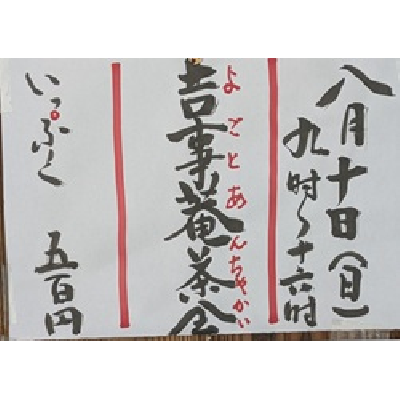 八月十日(日)
九時～十六時
よごとあんちゃかい
吉事菴茶会
いっぷく 五百円